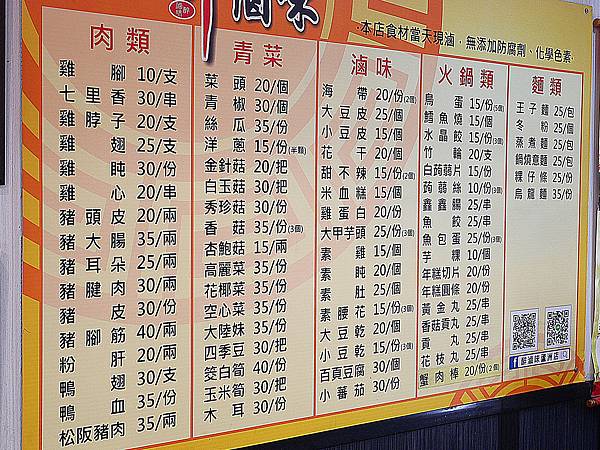 滷味
本店食材當天現滷,無添加防腐劑、化學色素
肉類
雞腳 10/支
七里香 30/串
雞脖子 20/支
雞翅 25/支
雞肫 30/份
雞心 20/串
豬頭皮 20/兩
豬大腸 35/兩
豬耳朵 25/兩
豬腱肉 30/兩
豬皮 30/份
豬腳筋 40/兩
粉肝 20/兩
鴨翅 30/支
鴨血 35/份
松阪豬肉 35/兩
青菜
菜頭 20/個
青椒 30/個
絲瓜 35/份
洋蔥 15/份(半顆)
金針菇 20/把
白玉菇 30/把
秀珍菇 30/份
香菇 35/份(3個)
杏鮑菇 15/兩
高麗菜 35/份
花椰菜 35/份
空心菜 35/份
大陸妹 35/份
四季豆 30/把
筊白筍 40/份
玉米筍 30/把
木耳 30/份
滷味
海帶 20/份(2個)
大豆皮 25/個
小豆皮 15/個
花干 20/個
甜不辣 15/份(2個)
米血糕 15/個
雞蛋白 20/份
大甲芋頭 25/份(3個)
素雞 15/個
素肫 20/個
素肚 25/個
素腰花 15/份(3個)
大豆乾 20/個
小豆乾 15/份(3個)
百頁豆腐 30/個
小番茄 30/份
火鍋類
鳥蛋 15/份(5個)
鱈魚燒 15/個
水晶餃 15/份(3個)
竹輪 20/支
白蒟蒻片 15/份
蒟蒻絲 10/份(3個)
鑫鑫腸 25/串
魚餃 25/串
魚包蛋 25/份(3個)
芋粿 10/個
年糕切片 20/份
年糕圓條 20/份
黃金丸 25/串
香菇貢丸 25/串
貢丸 25/串
花枝丸 25/串
蟹肉棒 20/份(2個)
麵類
王子麵 25/包
冬粉 25/個
蒸煮麵 25/包
鍋燒意麵 25/包
粿仔條 25/份
烏龍麵 35/份
醉滷味蘆洲店